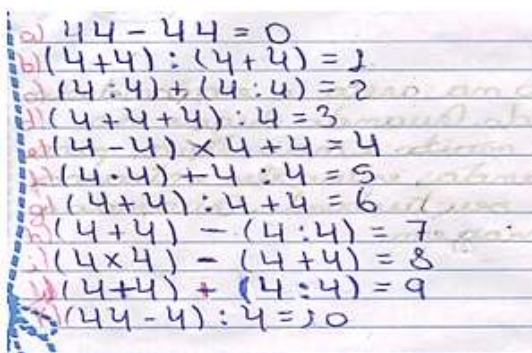 a) 44 - 44 = 0
b) (4+4) : (4+4) = 1
c) (4:4) + (4:4) = 2
d) (4+4+4) : 4 = 3
e) (4-4) × 4 + 4 = 4
f) (4·4) + 4 : 4 = 5
g) (4+4) : 4 + 4 = 6
h) (4+4) - (4:4) = 7
i) (4×4) - (4+4) = 8
j) (4+4) + (4:4) = 9
(44-4) : 4 = 10